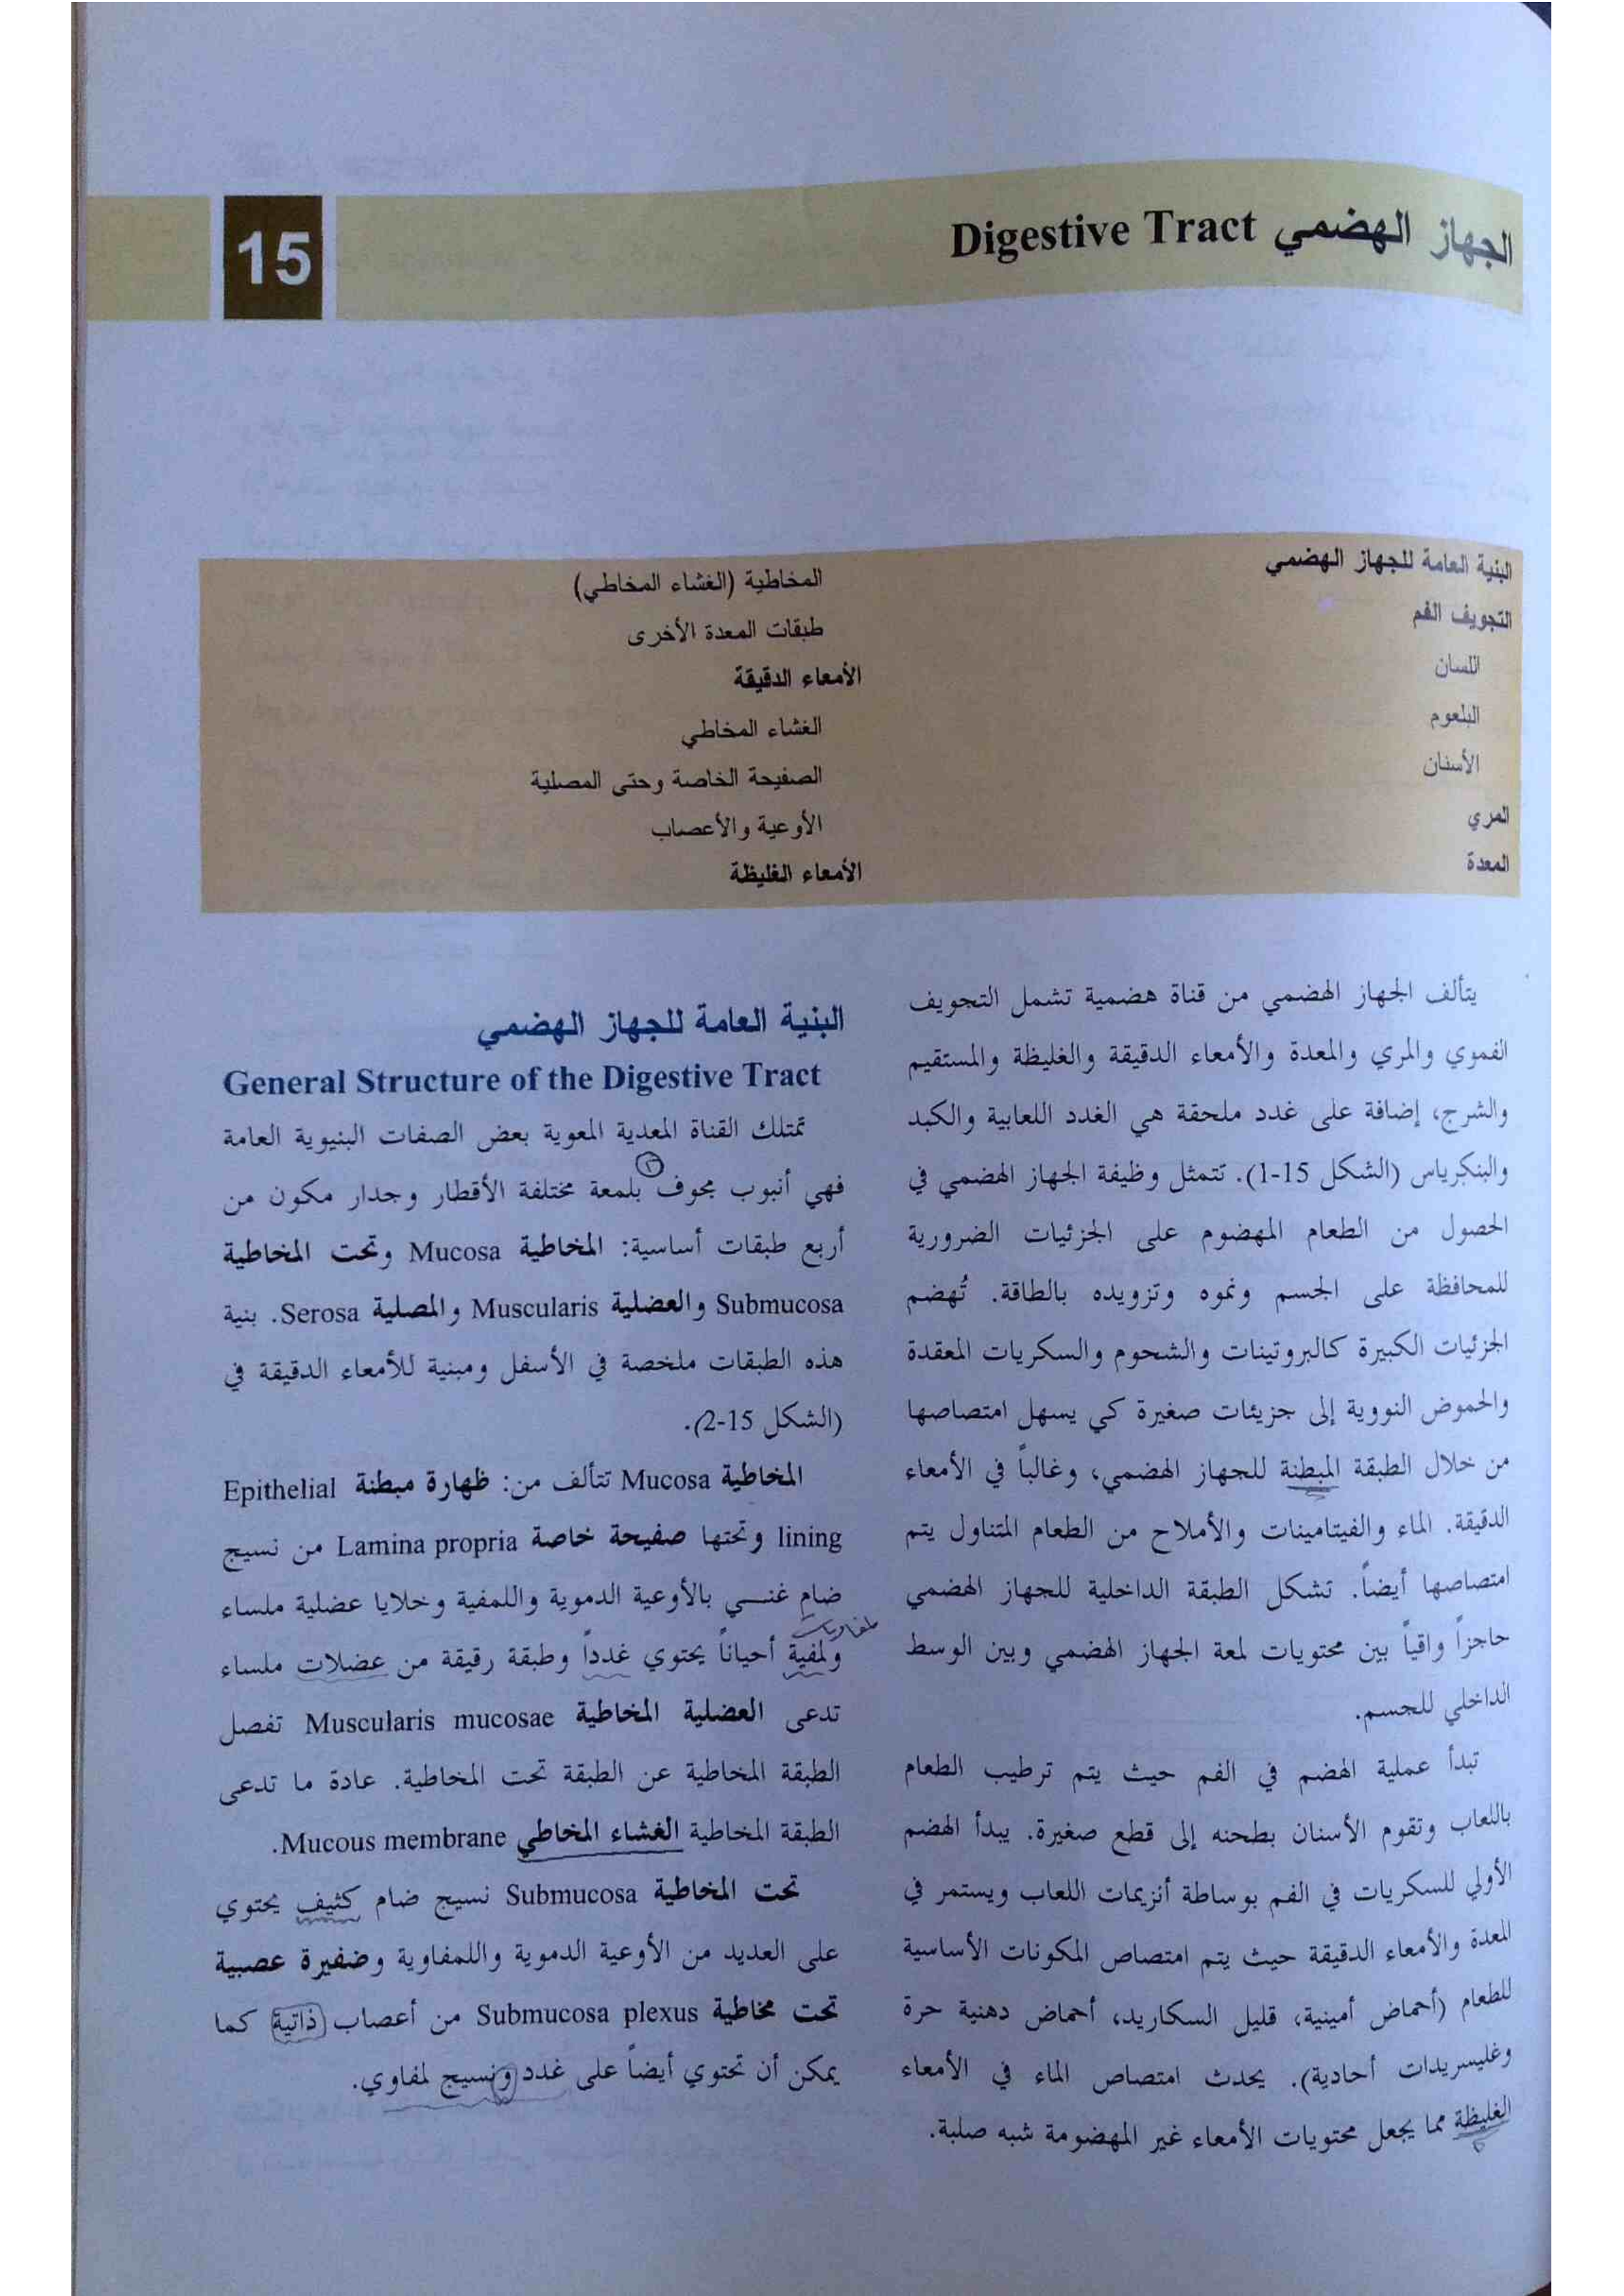 الجهاز الهضمي Digestive Tract
15
البنية العامة للجهاز الهضمي
التجويف الفم
اللسان
البلعوم
الأسنان
المري
المعدة
المخاطية (الغشاء المخاطي)
طبقات المعدة الأخرى
الأمعاء الدقيقة
الغشاء المخاطي
الصفيحة الخاصة وحتى المصلية
الأوعية والأعصاب
الأمعاء الغليظة
يتألف الجهاز الهضمي من قناة هضمية تشمل التجويف
الفموي والمري والمعدة والأمعاء الدقيقة والغليظة والمستقيم
والشرج، إضافة على غدد ملحقة هي الغدد اللعابية والكبد
والبنكرياس (الشكل 15-1). تتمثل وظيفة الجهاز الهضمي في
الحصول من الطعام المهضوم على الجزئيات الضرورية
للمحافظة على الجسم ونموه وتزويده بالطاقة. تُهضم
الجزئيات الكبيرة كالبروتينات والشحوم والسكريات المعقدة
والحموض النووية إلى جزيئات صغيرة كي يسهل امتصاصها
من خلال الطبقة المبطنة للجهاز الهضمي، وغالباً في الأمعاء
الدقيقة. الماء والفيتامينات والأملاح من الطعام المتناول يتم
امتصاصها أيضاً. تشكل الطبقة الداخلية للجهاز الهضمي
حاجزاً واقياً بين محتويات لمعة الجهاز الهضمي وبين الوسط
الداخلي للجسم.
تبدأ عملية الهضم في الفم حيث يتم ترطيب الطعام
باللعاب وتقوم الأسنان بطحنه إلى قطع صغيرة. يبدأ الهضم
الأولي للسكريات في الفم بوساطة أنزيمات اللعاب ويستمر في
المعدة والأمعاء الدقيقة حيث يتم امتصاص المكونات الأساسية
للطعام (أحماض أمينية، قليل السكاريد، أحماض دهنية حرة
وغليسريدات أحادية). يحدث امتصاص الماء في الأمعاء
الغليظة مما يجعل محتويات الأمعاء غير المهضومة شبه صلبة.
البنية العامة للجهاز الهضمي
General Structure of the Digestive Tract
تمتلك القناة المعدية المعوية بعض الصفات البنيوية العامة
فهي أنبوب مجوف بلمعة مختلفة الأقطار وجدار مكون من
أربع طبقات أساسية: المخاطية Mucosa وتحت المخاطية
Submucosa والعضلية Muscularis والمصلية Serosa. بنية
هذه الطبقات ملخصة في الأسفل ومبنية للأمعاء الدقيقة في
(الشكل 15-2).
المخاطية Mucosa تتألف من: ظهارة مبطنة Epithelial
lining وتحتها صفيحة خاصة Lamina propria من نسيج
ضام غنـــي بالأوعية الدموية واللمفية وخلايا عضلية ملساء
لمفاويات
ولمفية أحياناً يحتوي غدداً وطبقة رقيقة من عضلات ملساء
تدعى العضلية المخاطية Muscularis mucosae تفصل
الطبقة المخاطية عن الطبقة تحت المخاطية. عادة ما تدعى
الطبقة المخاطية الغشاء المخاطي Mucous membrane.
تحت المخاطية Submucosa نسيج ضام كثيف يحتوي
على العديد من الأوعية الدموية واللمفاوية وضفيرة عصبية
تحت مخاطية Submucosa plexus من أعصاب ذاتية كما
يمكن أن تحتوي أيضاً على غدد ونسيج لمفاوي.